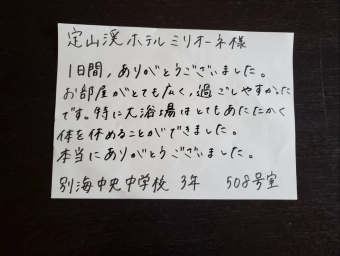 定山渓ホテルミリオーネ様
1日間,ありがとうございました。
お部屋がとても広く,過ごしやすかった
です。特に大浴場はとてもあたたかく
体を休めることができました。
本当にありがとうございました。
別海中央中学校 3年 508号室